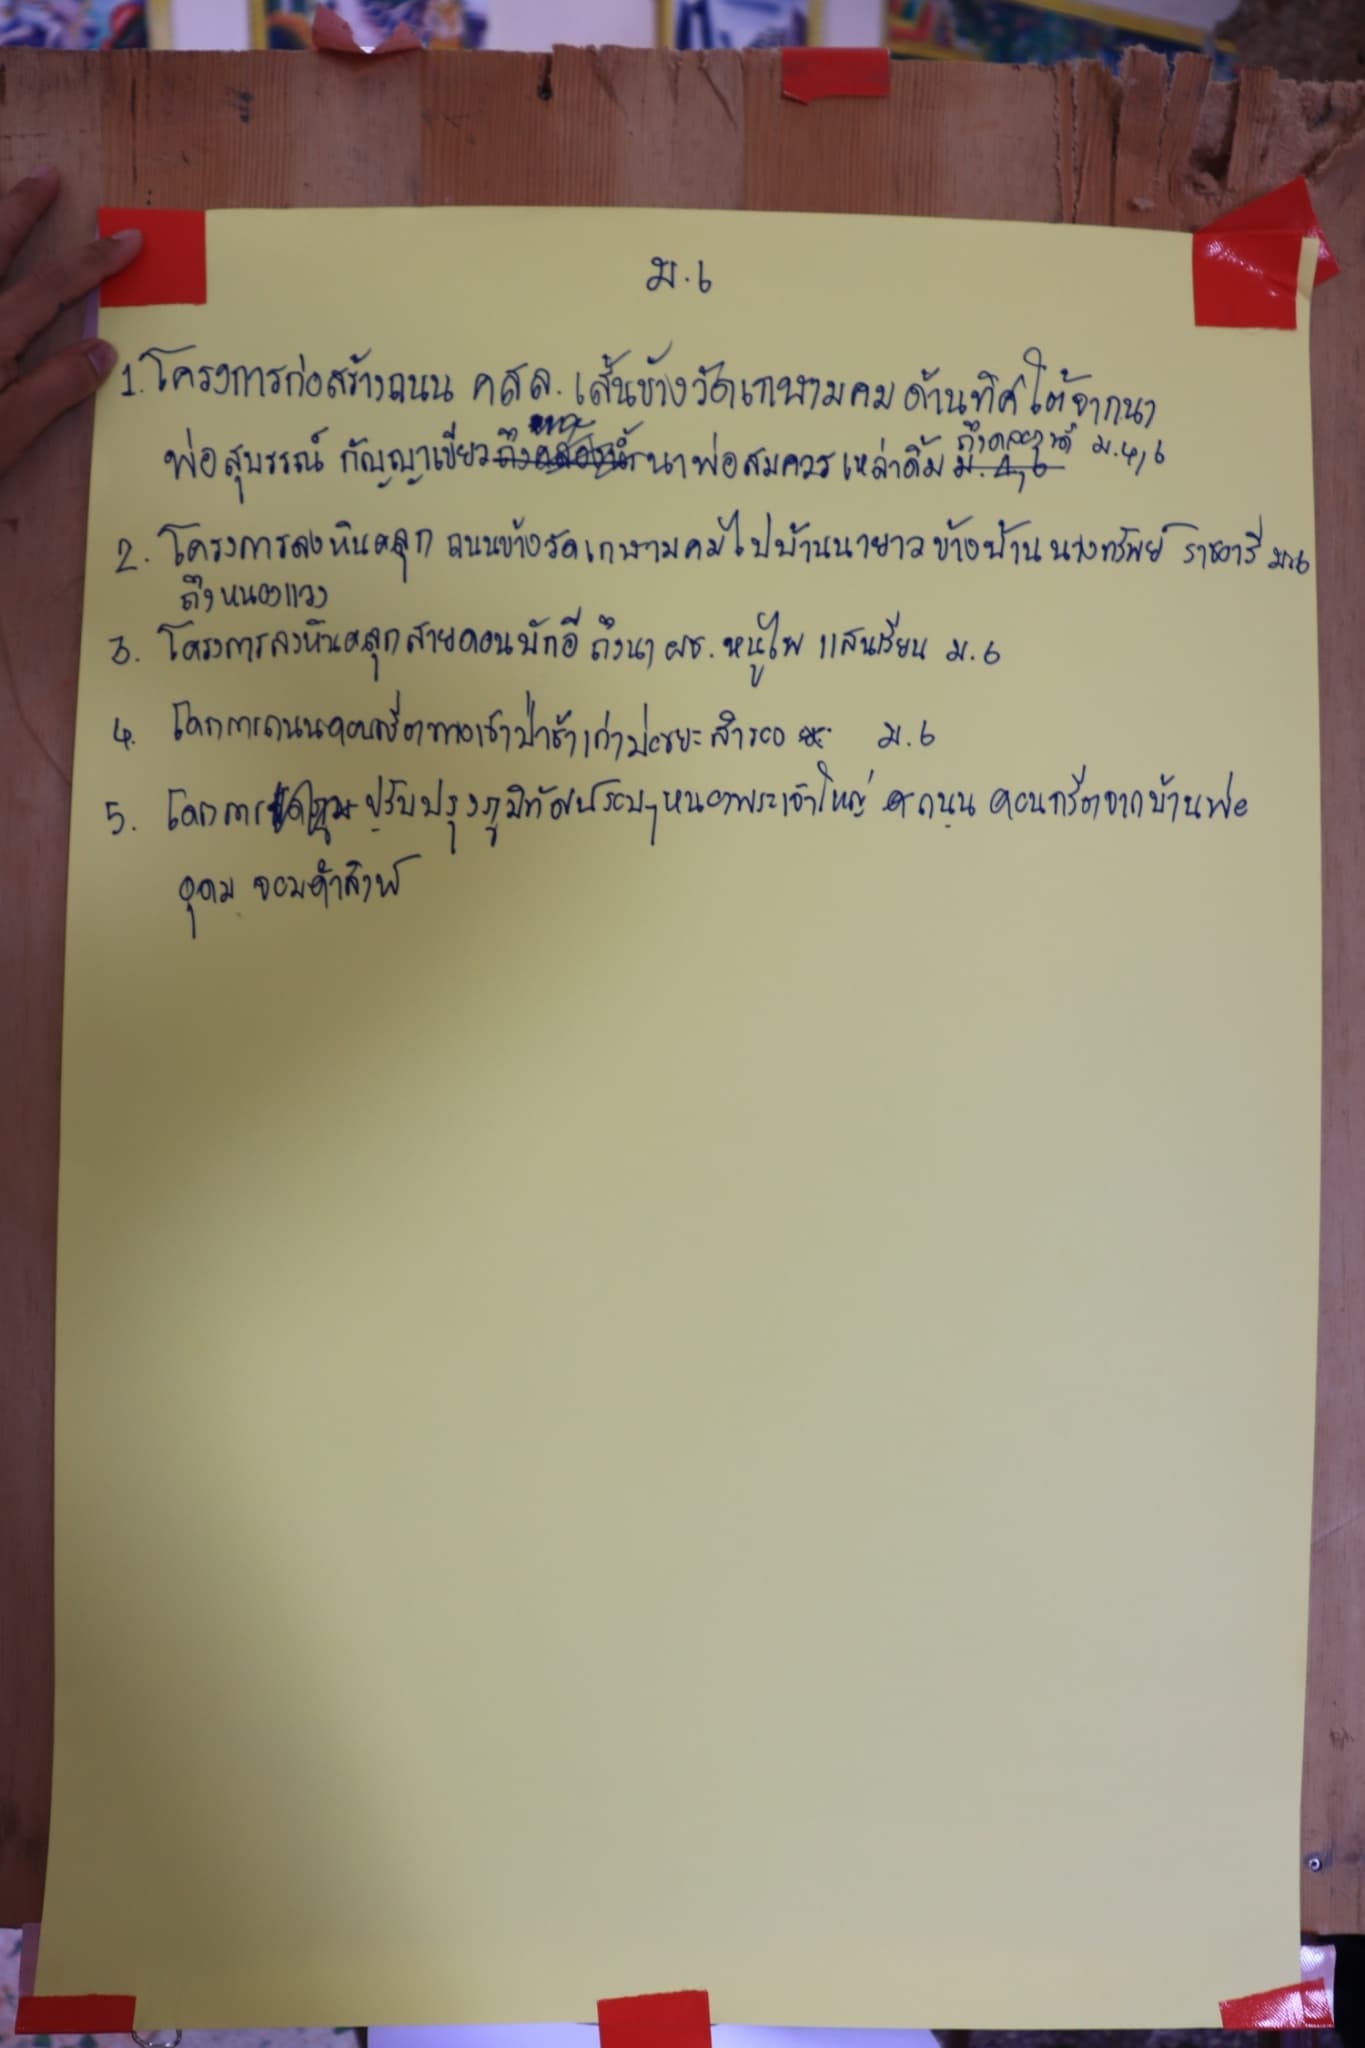 ม.6
1. โครงการก่อสร้างถนน คสล. เส้นข้างวัดเกษามคม ด้านทิศใต้จากนา
พ่อสุบรรณ์ กัญญาเขียว นาพ่อสมควร เหล่าดิ้ม ม.4,6
2. โครงการลงหินคลุก ถนนข้างวัดเกษามคมไปบ้านนายาว ข้างบ้านนางทรัพย์ ราชอารี ม.6
ถึงหนองแวง
3. โครงการลงหินคลุกสายดอนบักอี ถึงนา ผช. หนูไพ แสนเรียน ม.6
4. โครงการถนนคอนกรีตทางเข้าป่าช้าเก่าบ่อขยะสำรอง ม.6
5. โครงการ ปรับปรุงภูมิทัศน์รอบๆหนองพระเจ้าใหญ่ ถนน คอนกรีตจากบ้านพ่อ
อุดม จอมคำสิงห์